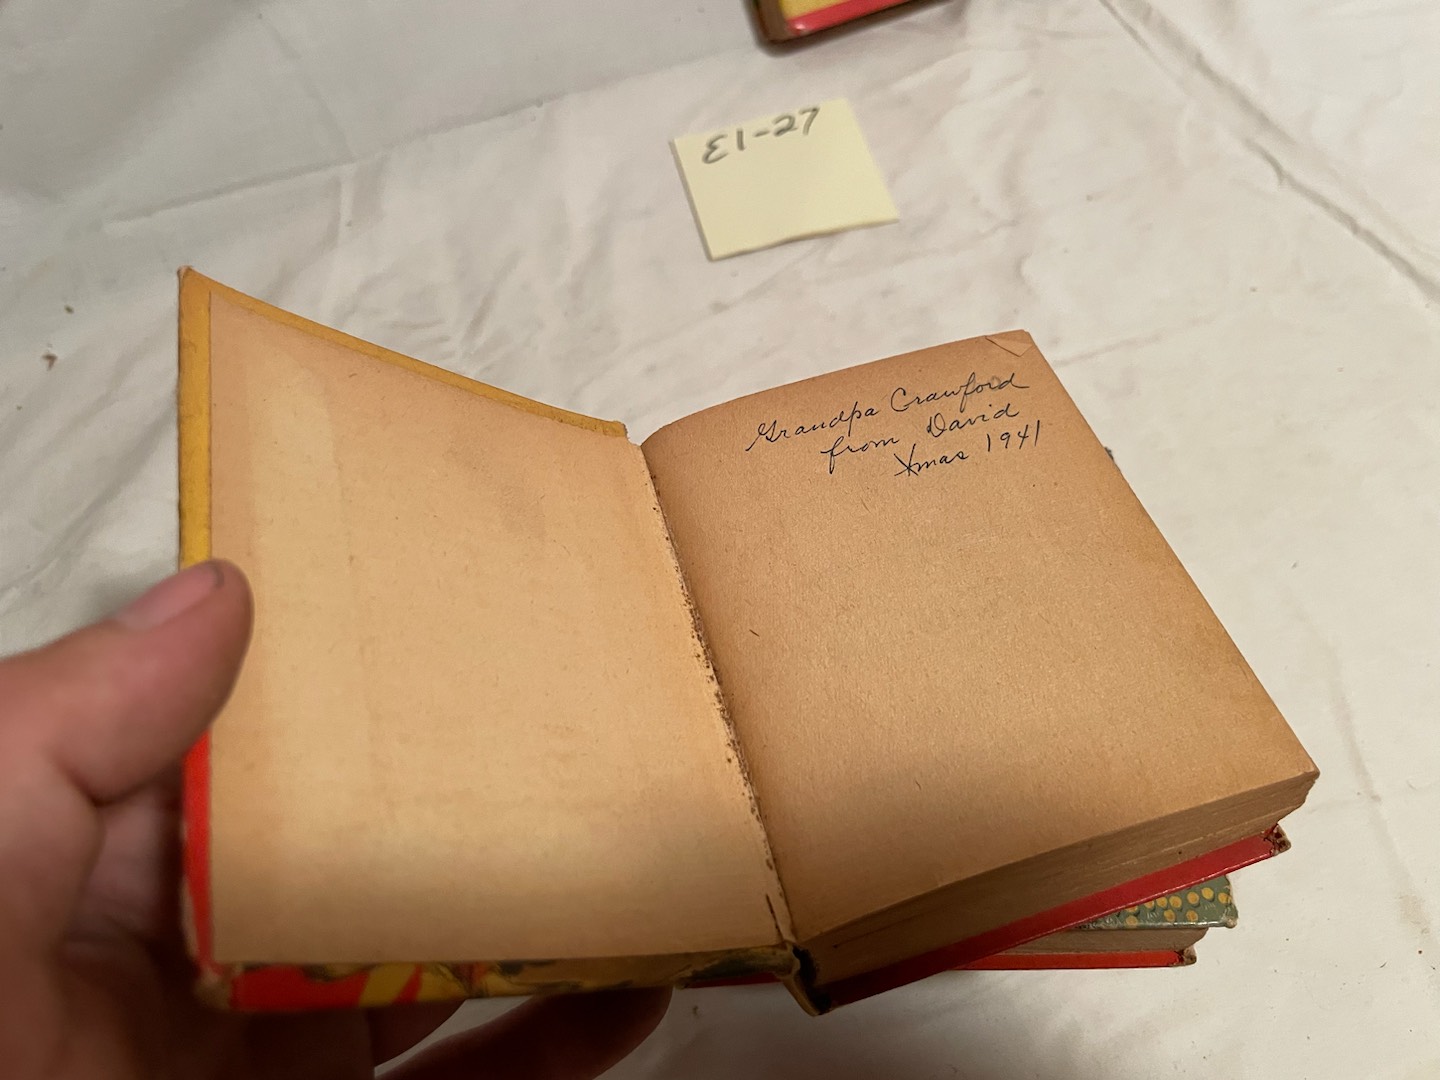 E1-27
Grandpa Crawford
from David
Xmas 1941